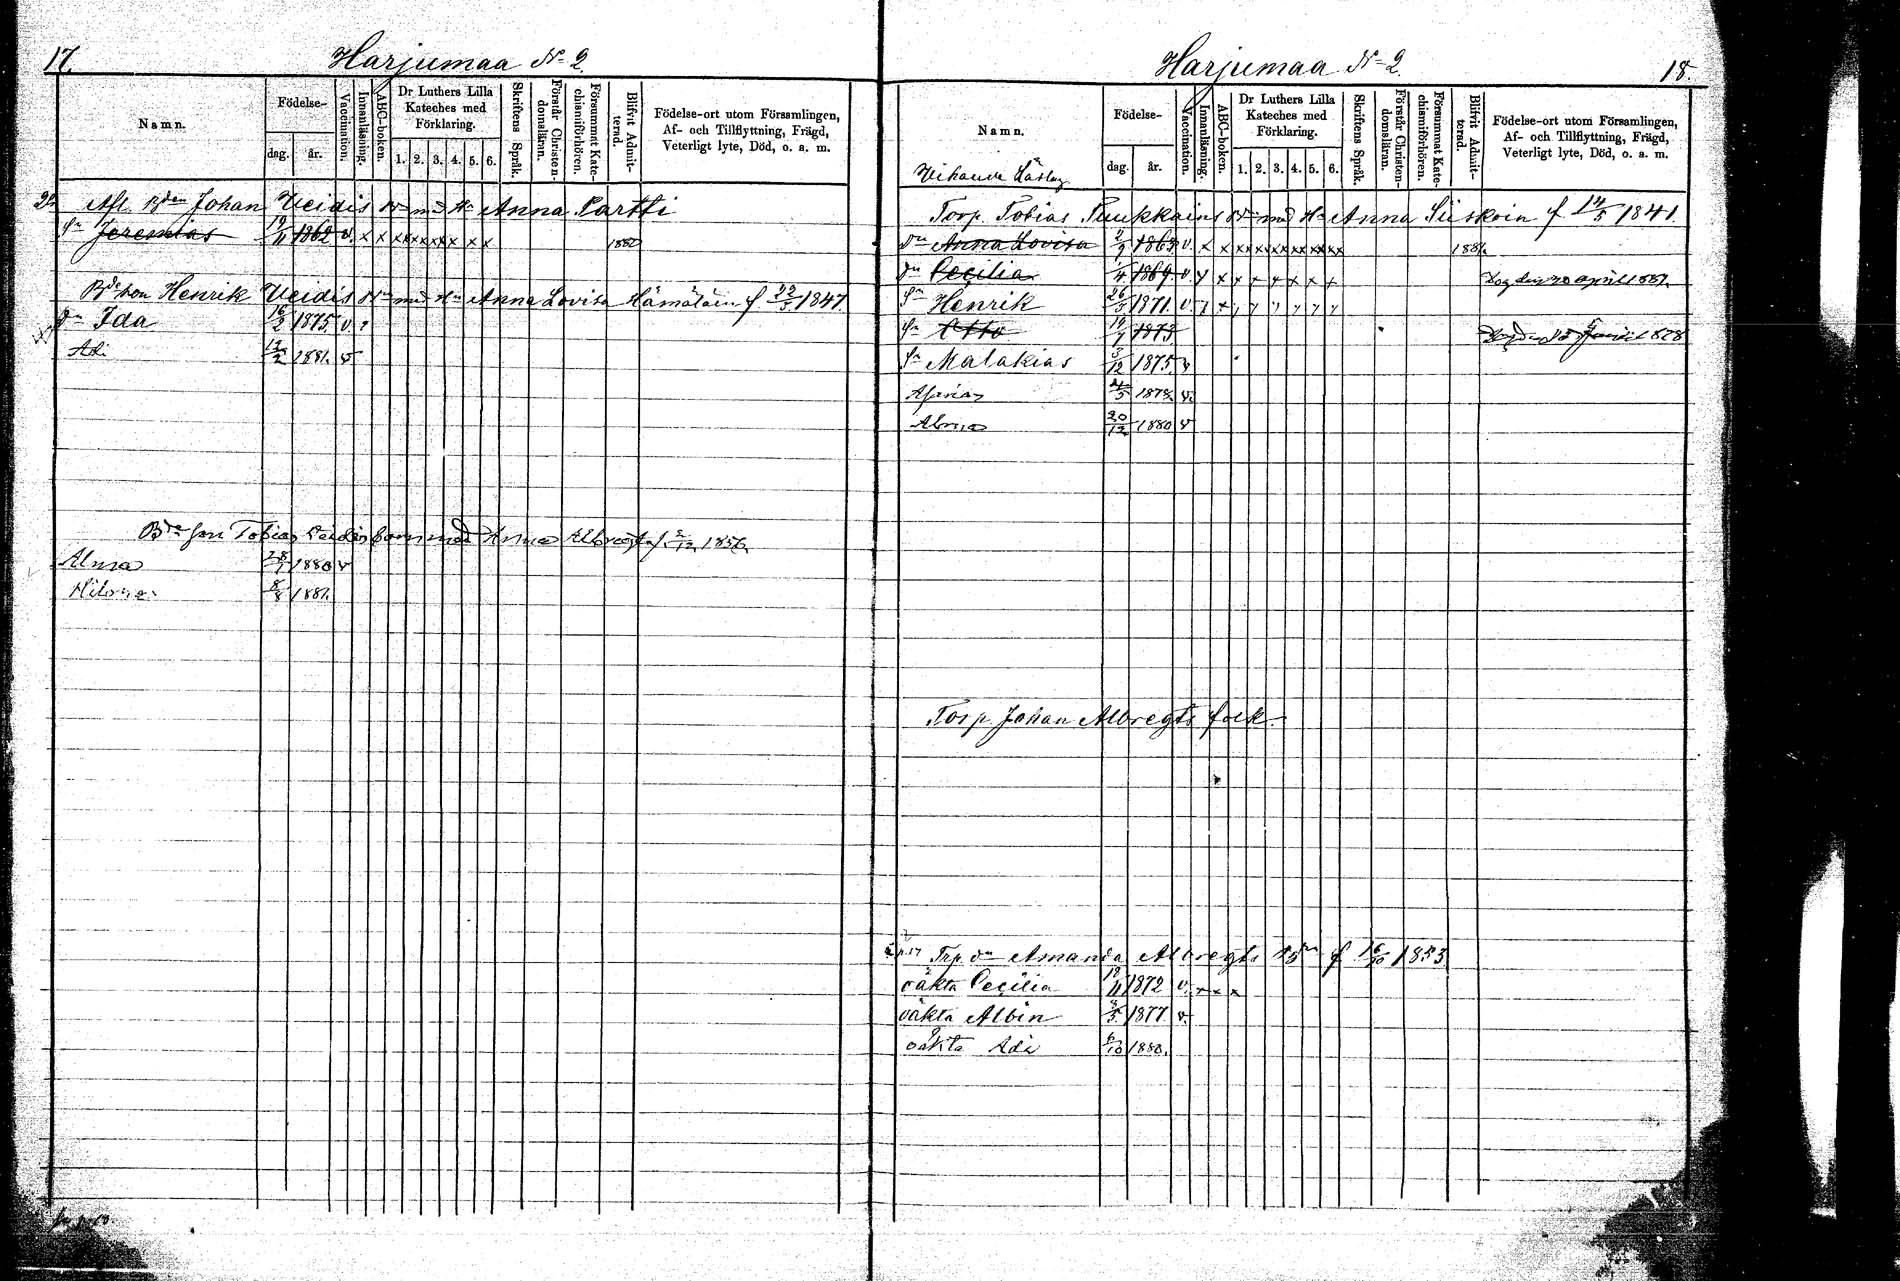 17.
Harjumaa No 2.
Namn.
Födelse-
dag.
år.
Vaccination.
Innanläsning.
ABC-boken.
Dr Luthers Lilla
Kateches med
Förklaring.
1. 2. 3. 4. 5. 6.
Skriftens Språk.
Förstår Christen-
domsläran.
Försummat Kate-
chismiförhören.
Blifvit Admit-
terad.
Födelse-ort utom Församlingen,
Af- och Tillflyttning, Frägd,
Veterligt lyte, Död, o. a. m.
Afl. Bden Johan Veidis med Anna Partti
Sn Jeremias 19/11 1862 v. x x x x x x x x x x 1880
Bdeson Henrik Veidis med Anna Lovisa Hämäläin f 22/5 1847.
dr Ida 16/2 1875 v.
Adi 12/2 1881. v
Bde son Tobias Veidis med Anna Albregts f. 2/12 1856.
Alma 1880 v
Hilma 8/8 1881.
Harjumaa No 2.
18.
Namn.
Födelse-
dag.
år.
Vaccination.
Innanläsning.
ABC-boken.
Dr Luthers Lilla
Kateches med
Förklaring.
1. 2. 3. 4. 5. 6.
Skriftens Språk.
Förstår Christen-
domsläran.
Försummat Kate-
chismiförhören.
Blifvit Admit-
terad.
Födelse-ort utom Församlingen,
Af- och Tillflyttning, Frägd,
Veterligt lyte, Död, o. a. m.
Torp. Tobias Puukkains med Anna Siiskoin f 14/5 1841.
dr Anna Lovisa 1863 v. x x x x x x x x x x 1881.
dr Cecilia 1869 v x x x x x x x Dog den 30 april 1881.
Sn Henrik 26/5 1871. v.
Sn Otto 1873 1878
Sn Malakias 3/12 1875 v
Asarias 1878 v.
Alma 20/12 1880 v
Torp. Johan Albregts folk.
Trp. dr Amanda Albregts f 16/10 1853
oäkta Cecilia 18/11 1872 v. x x x
oäkta Albin 1877. v.
oäkta Ada 6/10 1880.